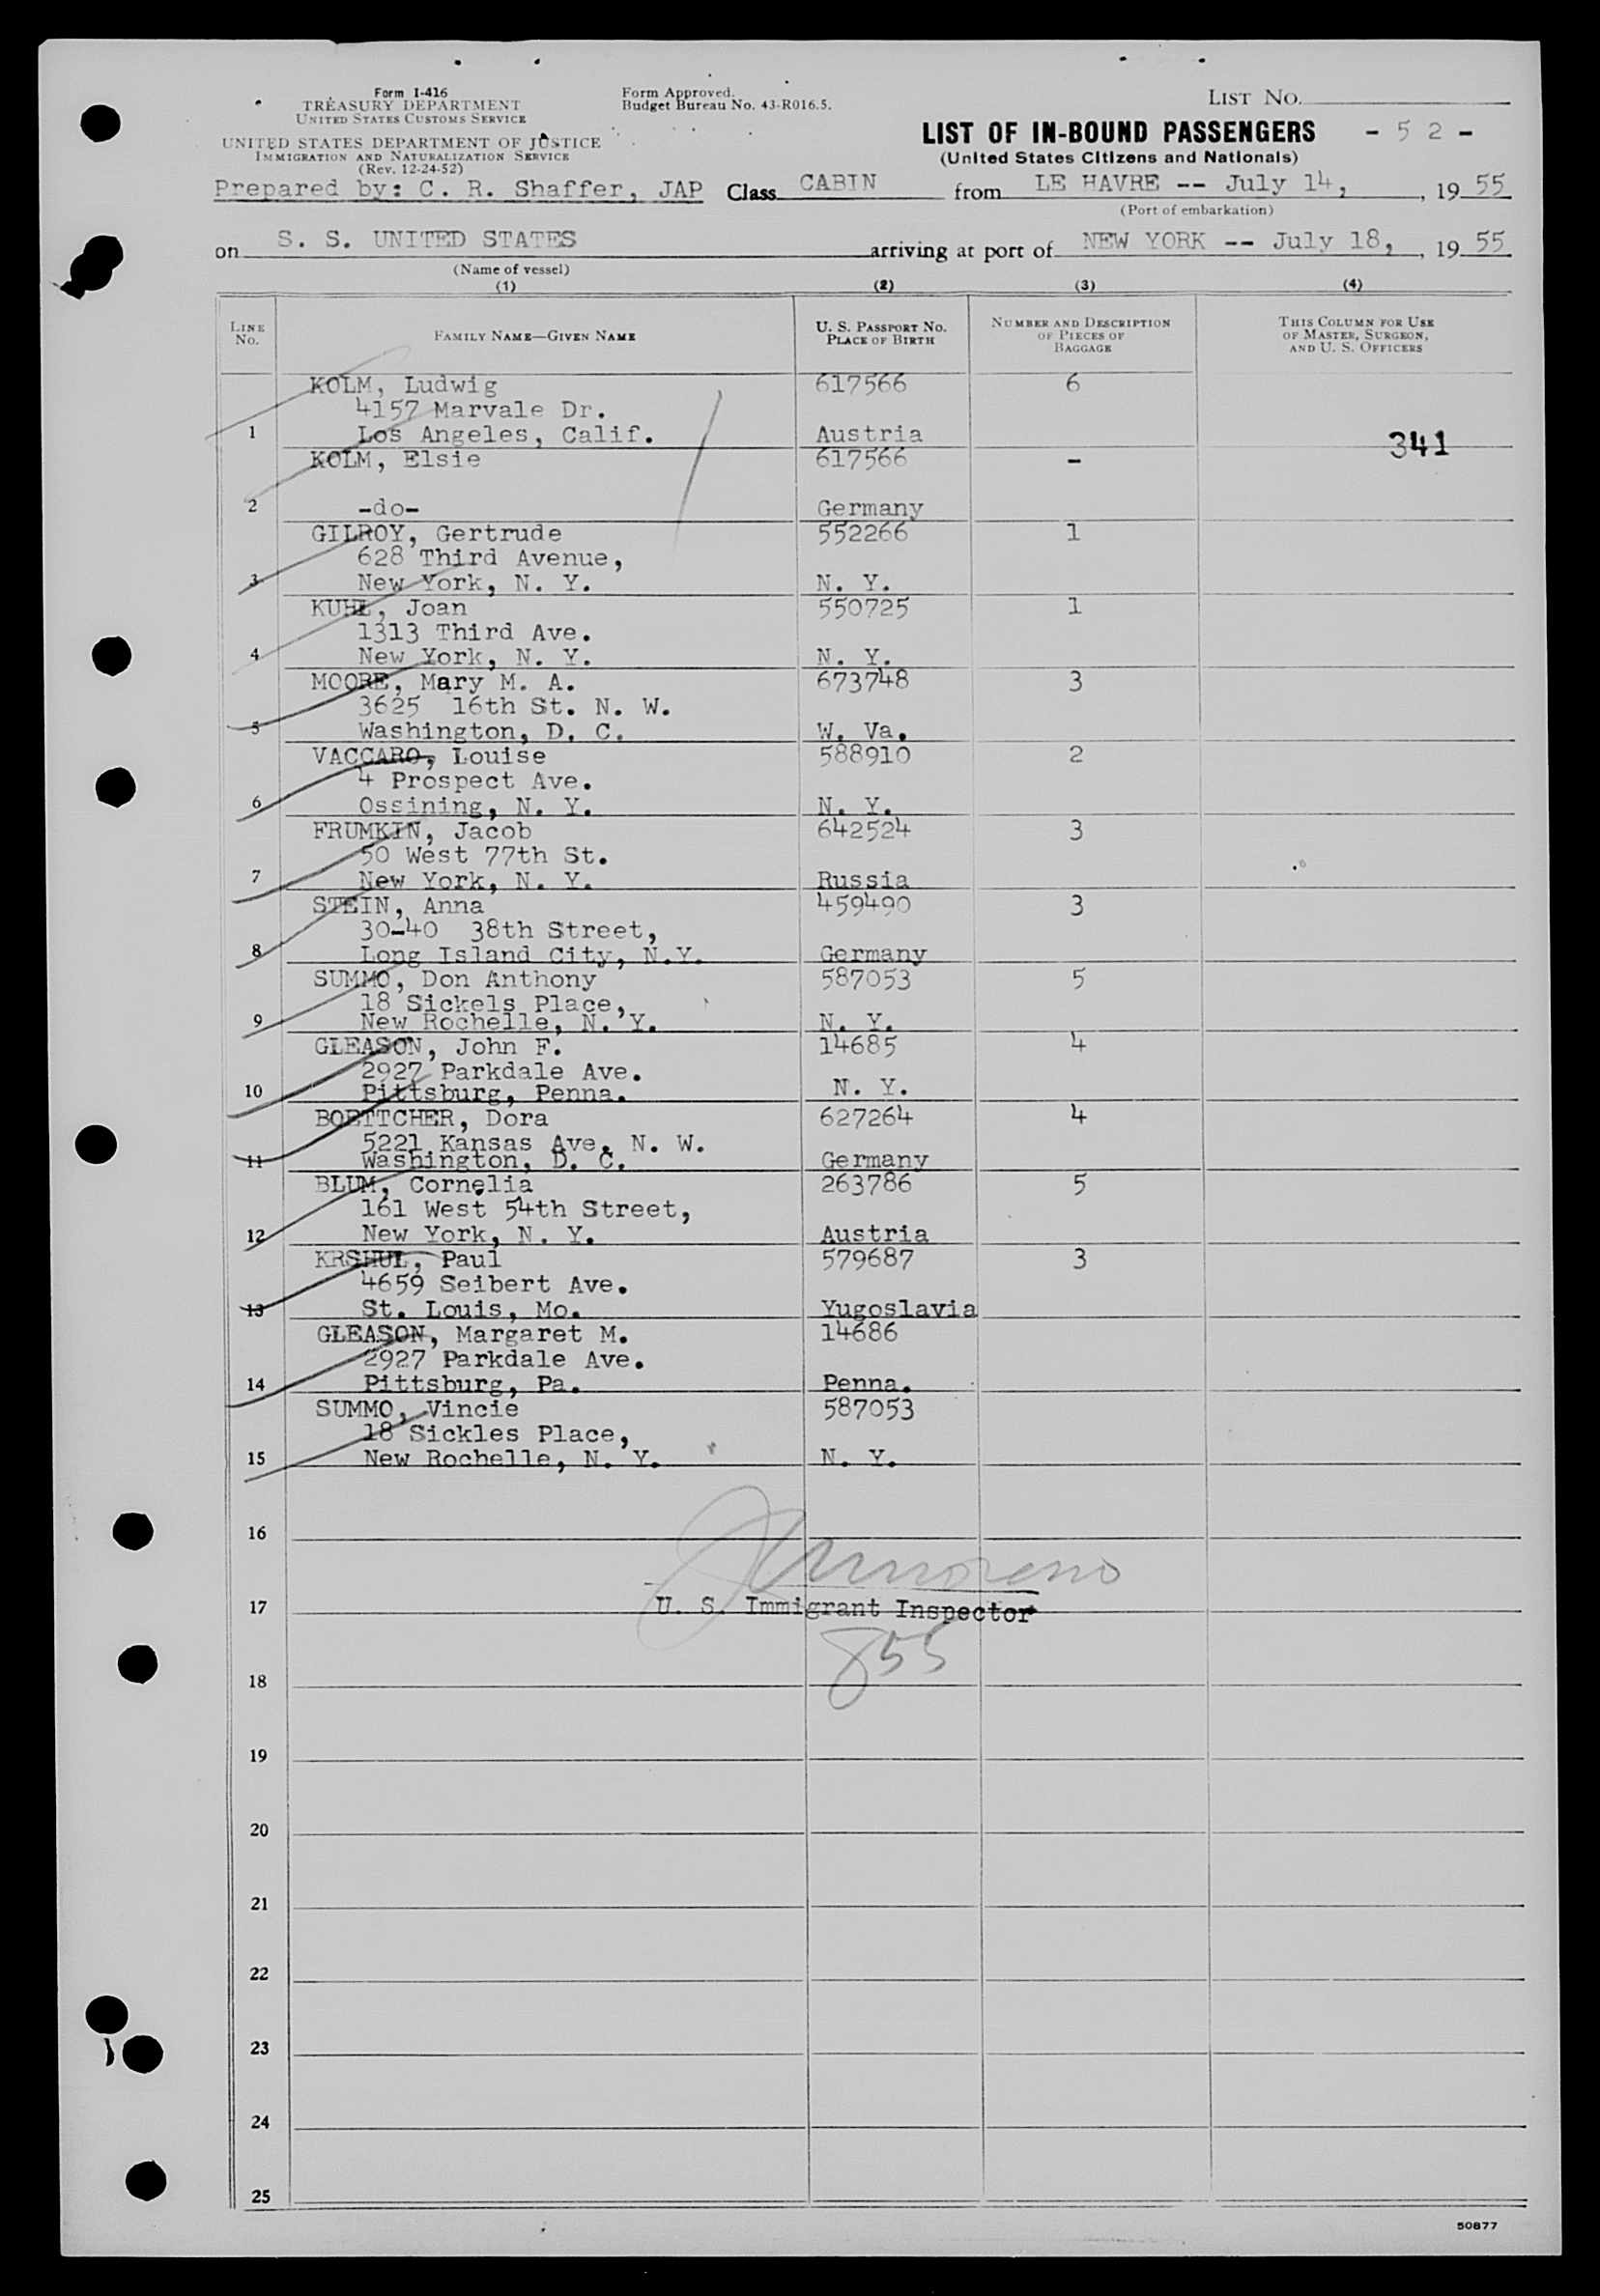 Form I-416
TREASURY DEPARTMENT
UNITED STATES CUSTOMS SERVICE
UNITED STATES DEPARTMENT OF JUSTICE
IMMIGRATION AND NATURALIZATION SERVICE
(Rev. 12-24-52)
Form Approved.
Budget Bureau No. 43-R016.5.
LIST NO.
LIST OF IN-BOUND PASSENGERS - 5 2 -
(United States Citizens and Nationals)
Prepared by: C. R. Shaffer, JAP Class CABIN from LE HAVRE -- July 14, , 19 55
(Port of embarkation)
on S. S. UNITED STATES arriving at port of NEW YORK -- July 18, , 19 55
(Name of vessel)
(1) (2) (3) (4)
LINE NO. FAMILY NAME—GIVEN NAME U. S. PASSPORT NO. PLACE OF BIRTH NUMBER AND DESCRIPTION OF PIECES OF BAGGAGE THIS COLUMN FOR USE OF MASTER, SURGEON, AND U. S. OFFICERS
KOLM, Ludwig 617566 6
4157 Marvale Dr.
1 Los Angeles, Calif. Austria 341
KOLM, Elsie 617566 -
2 -do- Germany
GILROY, Gertrude 552266 1
628 Third Avenue,
3 New York, N. Y. N. Y.
KUHL, Joan 550725 1
1313 Third Ave.
4 New York, N. Y. N. Y.
MOORE, Mary M. A. 673748 3
3625 16th St. N. W.
5 Washington, D. C. W. Va.
VACCARO, Louise 588910 2
4 Prospect Ave.
6 Ossining, N. Y. N. Y.
FRUMKIN, Jacob 642524 3
50 West 77th St.
7 New York, N. Y. Russia
STEIN, Anna 459490 3
30-40 38th Street,
8 Long Island City, N.Y. Germany
SUMMO, Don Anthony 587053 5
18 Sickels Place,
9 New Rochelle, N. Y. N. Y.
GLEASON, John F. 14685 4
2927 Parkdale Ave.
10 Pittsburg, Penna. N. Y.
BOETTCHER, Dora 627264 4
5221 Kansas Ave, N. W.
11 Washington, D. C. Germany
BLUM, Cornelia 263786 5
161 West 54th Street,
12 New York, N. Y. Austria
KRSHUL, Paul 579687 3
4659 Seibert Ave.
13 St. Louis, Mo. Yugoslavia
GLEASON, Margaret M. 14686
2927 Parkdale Ave.
14 Pittsburg, Pa. Penna.
SUMMO, Vincie 587053
18 Sickles Place,
15 New Rochelle, N. Y. N. Y.
16
17 U. S. Immigrant Inspector
855
18
19
20
21
22
23
24
25
50877